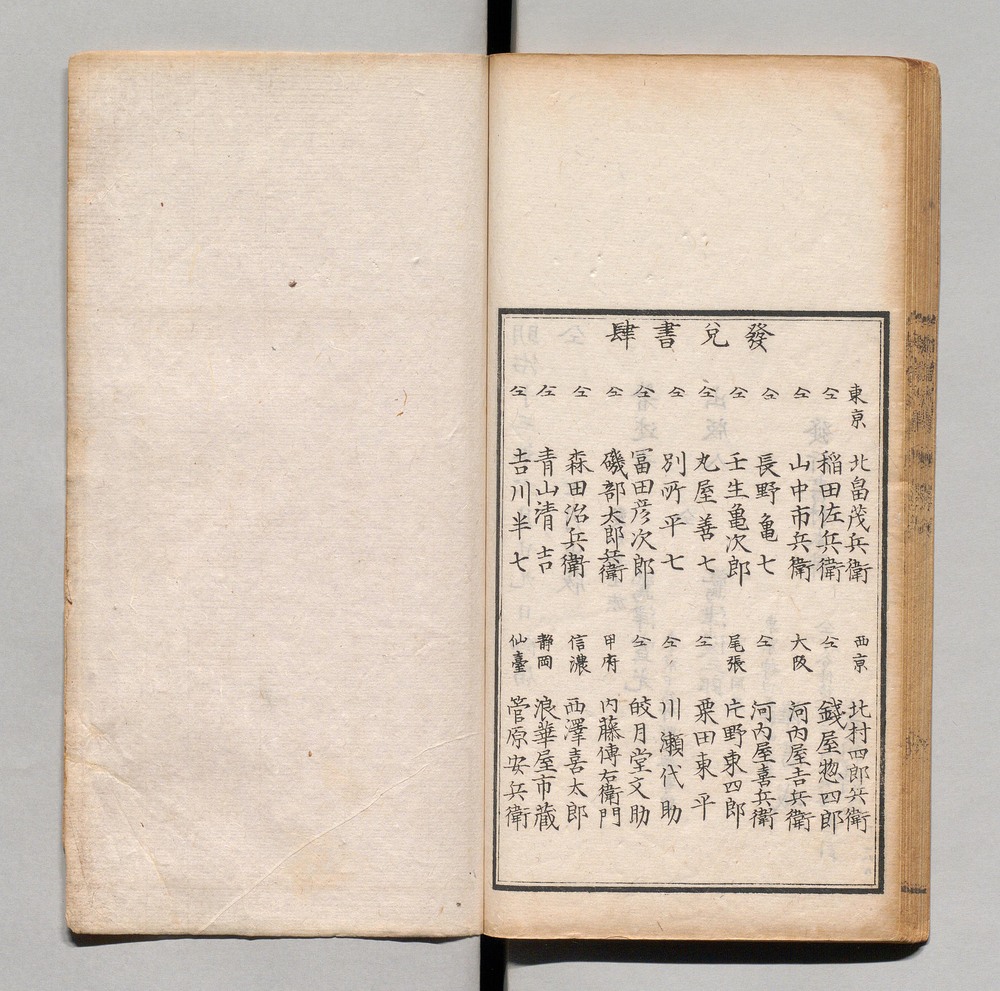 發兌書肆
東京 北畠茂兵衛
仝 稲田佐兵衛
仝 山中市兵衛
仝 長野亀七
仝 壬生亀次郎
仝 丸屋善七
仝 別所平七
仝 冨田彦次郎
仝 磯部太郎兵衛
仝 森田治兵衛
仝 青山清吉
仝 吉川半七
西京 北村四郎兵衛
仝 錢屋惣四郎
大阪 河内屋吉兵衛
仝 河内屋喜兵衛
尾張 片野東四郎
仝 栗田東平
仝 川瀬代助
仝 皎月堂文助
甲府 内藤傳右衛門
信濃 西澤喜太郎
静岡 浪華屋市蔵
仙臺 菅原安兵衛